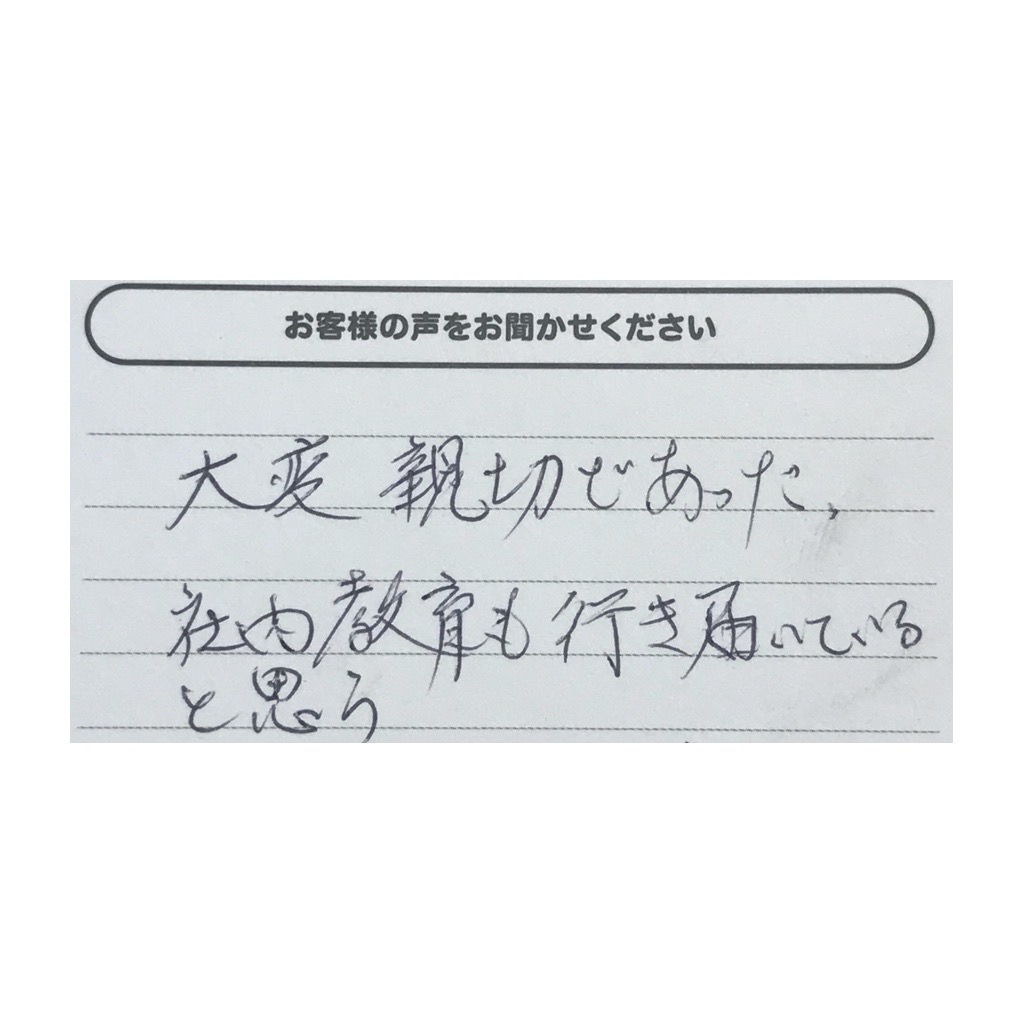 お客様の声をお聞かせください
大変親切であった、
社内教育も行き届いている
と思う